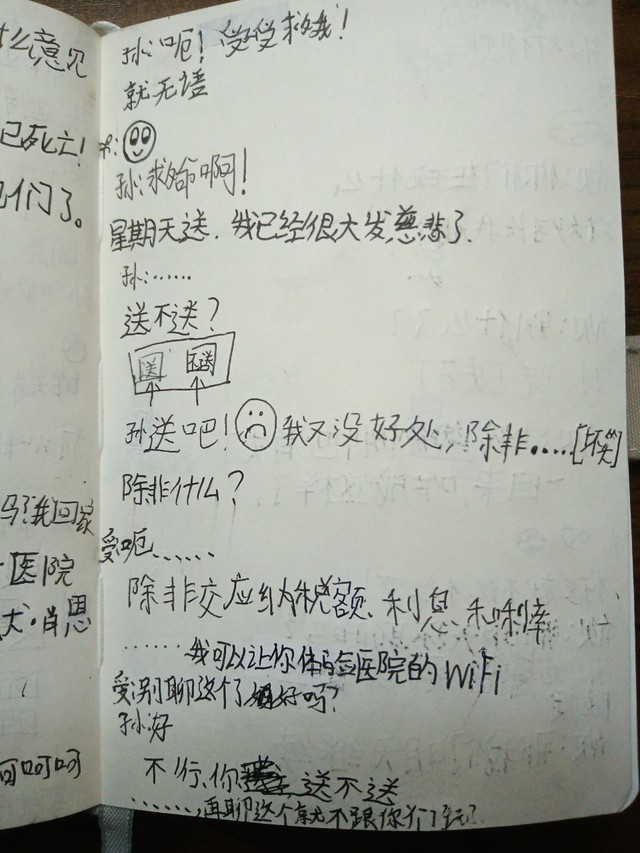 么意见
已死亡!
们了。
吗?我回家
医院
犬·肖恩
呵呵呵
孙:呃!受受救我!
就无语
孙:救命啊!
星期天送.我已经很大发慈悲了.
孙:……
送不送?
送 不送
孙送吧! 我又没好处,除非.....[坏笑]
除非什么?
受呃......
除非交应纳税额、利息和
......我可以让你体验医院的WiFi
受:别聊这个了 好吗?
孙:好
不行、你 送不送
......,再聊这个就不跟你